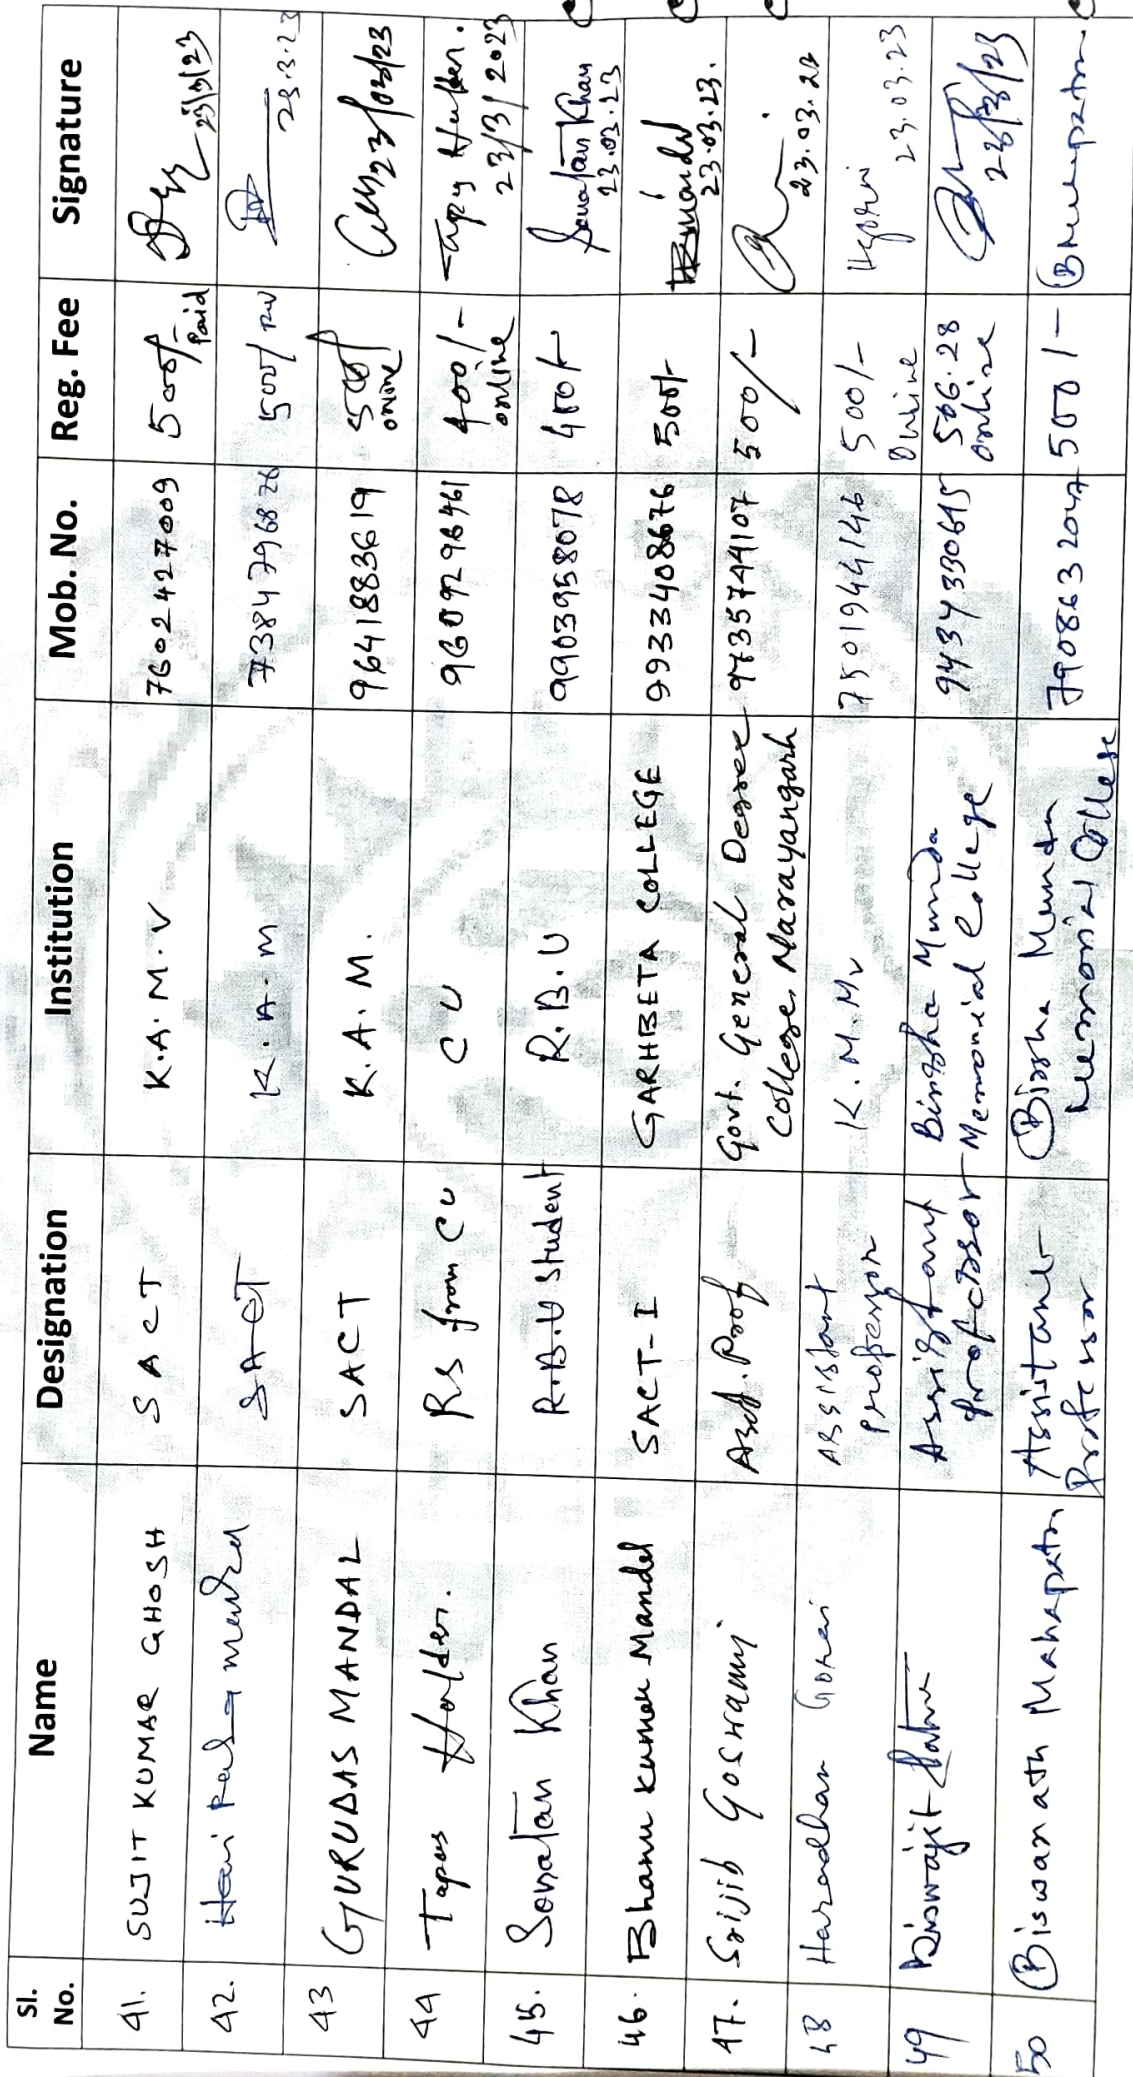 Sl. No. Name Designation Institution Mob. No. Reg. Fee Signature
41. SUJIT KUMAR GHOSH SACT K.A.M.V 7602427009 500/- Paid 23/3/23
42. SACT K.A.M 7384796826 500/- 23.3.23
43 GURUDAS MANDAL SACT K.A.M. 9641883619 500/ online 23/03/23
44 Tapas Halder. RS from CU CU 9609298461 400/- online 23/3/2023
45. Sonatan Khan R.B.U Student R.B.U 9903958078 400/- Sonatan Khan 23.03.23
46. Bhanu Kumar Mandal SACT-I GARHBETA COLLEGE 9933408676 500/- 23.03.23.
47. Srijib Goswami Asst. Prof Govt. General Degree College, Narayangarh 9735744107 500/- 23.03.23
48 Haradhan Gorai Assistant professor K.M.Mv 7501944146 500/- Online HGorai 23.03.23
49 Biswajit Assistant professor Birsha Munda Memorial College 9434330615 506.28 online 23/3/23
50 Biswanath Mahapatra Assistant Professor Birsha Munda Memorial College 7908632047 500/-